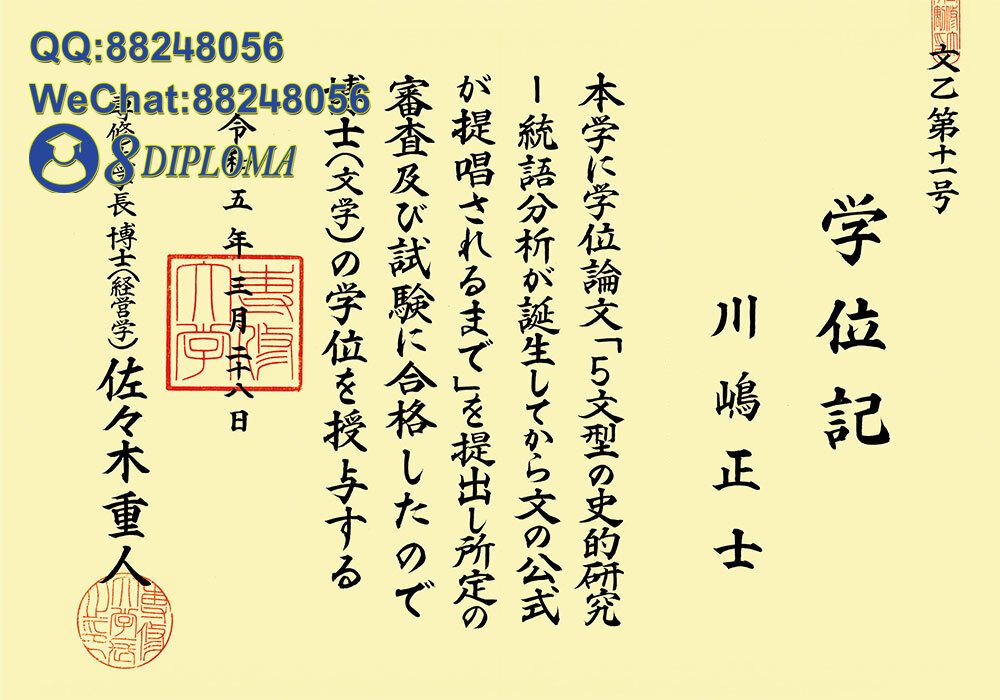 QQ:88248056
WeChat:88248056
8DIPLOMA
文乙第十一号
学位記
川嶋正士
本学に学位論文「5文型の史的研究
ー統語分析が誕生してから文の公式
が提唱されるまで」を提出し所定の
審査及び試験に合格したので
博士(文学)の学位を授与する
令和五年三月二十八日
専修大学長 博士(経営学) 佐々木重人
専修
大学